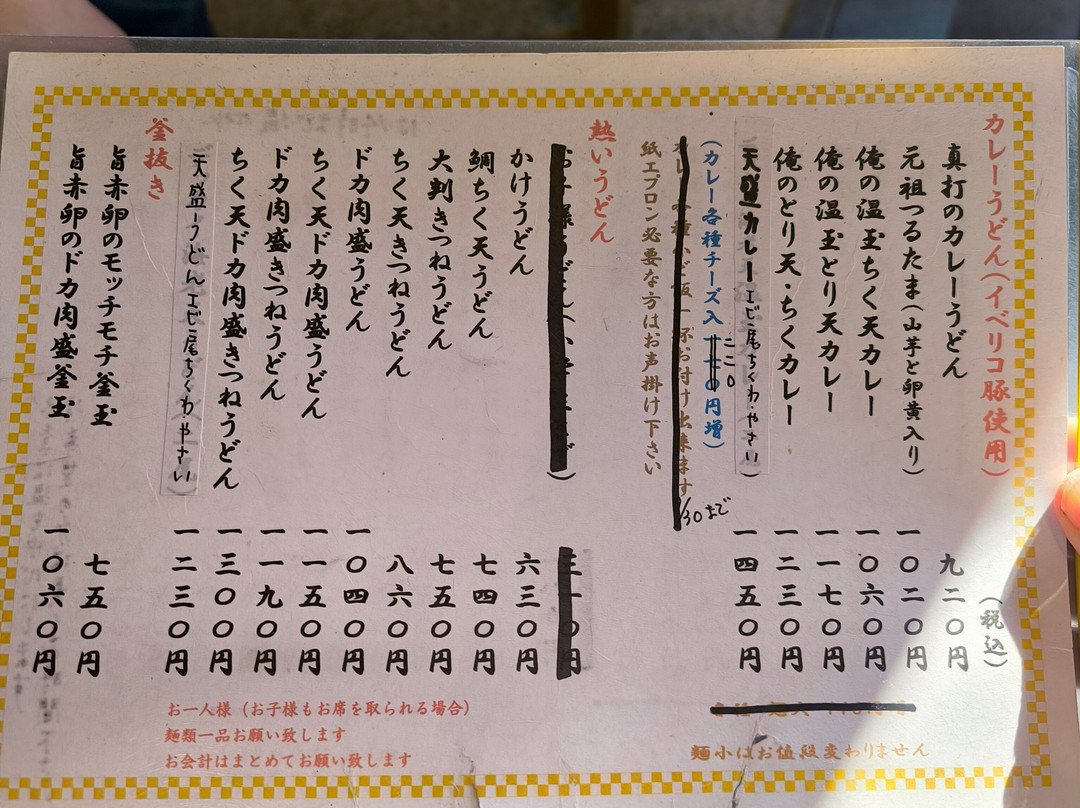 カレーうどん(イベリコ豚使用)
(税込)
真打のカレーうどん 九二〇円
元祖つるたま(山芋と卵黄入り) 一〇二〇円
俺の温玉ちく天カレー 一〇六〇円
俺の温玉とり天カレー 一一七〇円
俺のとり天・ちくカレー 一二三〇円
天盛カレーエビ二尾ちくわ・やさい) 一四五〇円
(カレー各種チーズ入 二二〇円増)
お付け出来ます
1/30まで
紙エプロン必要な方はお声掛け下さい
熱いうどん
かけうどん 六三〇円
鯛ちく天うどん 七四〇円
大判きつねうどん 七五〇円
ちく天きつねうどん 八六〇円
ドカ肉盛うどん 一〇四〇円
ちく天ドカ肉盛うどん 一一五〇円
ドカ肉盛きつねうどん 一一九〇円
ちく天ドカ肉盛きつねうどん 一三〇〇円
天盛ーうどんエビ二尾ちくわ・やさい) 一二三〇円
釜抜き
旨赤卵のモッチモチ釜玉 七五〇円
旨赤卵のドカ肉盛釜玉 一〇六〇円
麺小はお値段変わりません
お一人様(お子様もお席を取られる場合)
麺類一品お願い致します
お会計はまとめてお願い致します